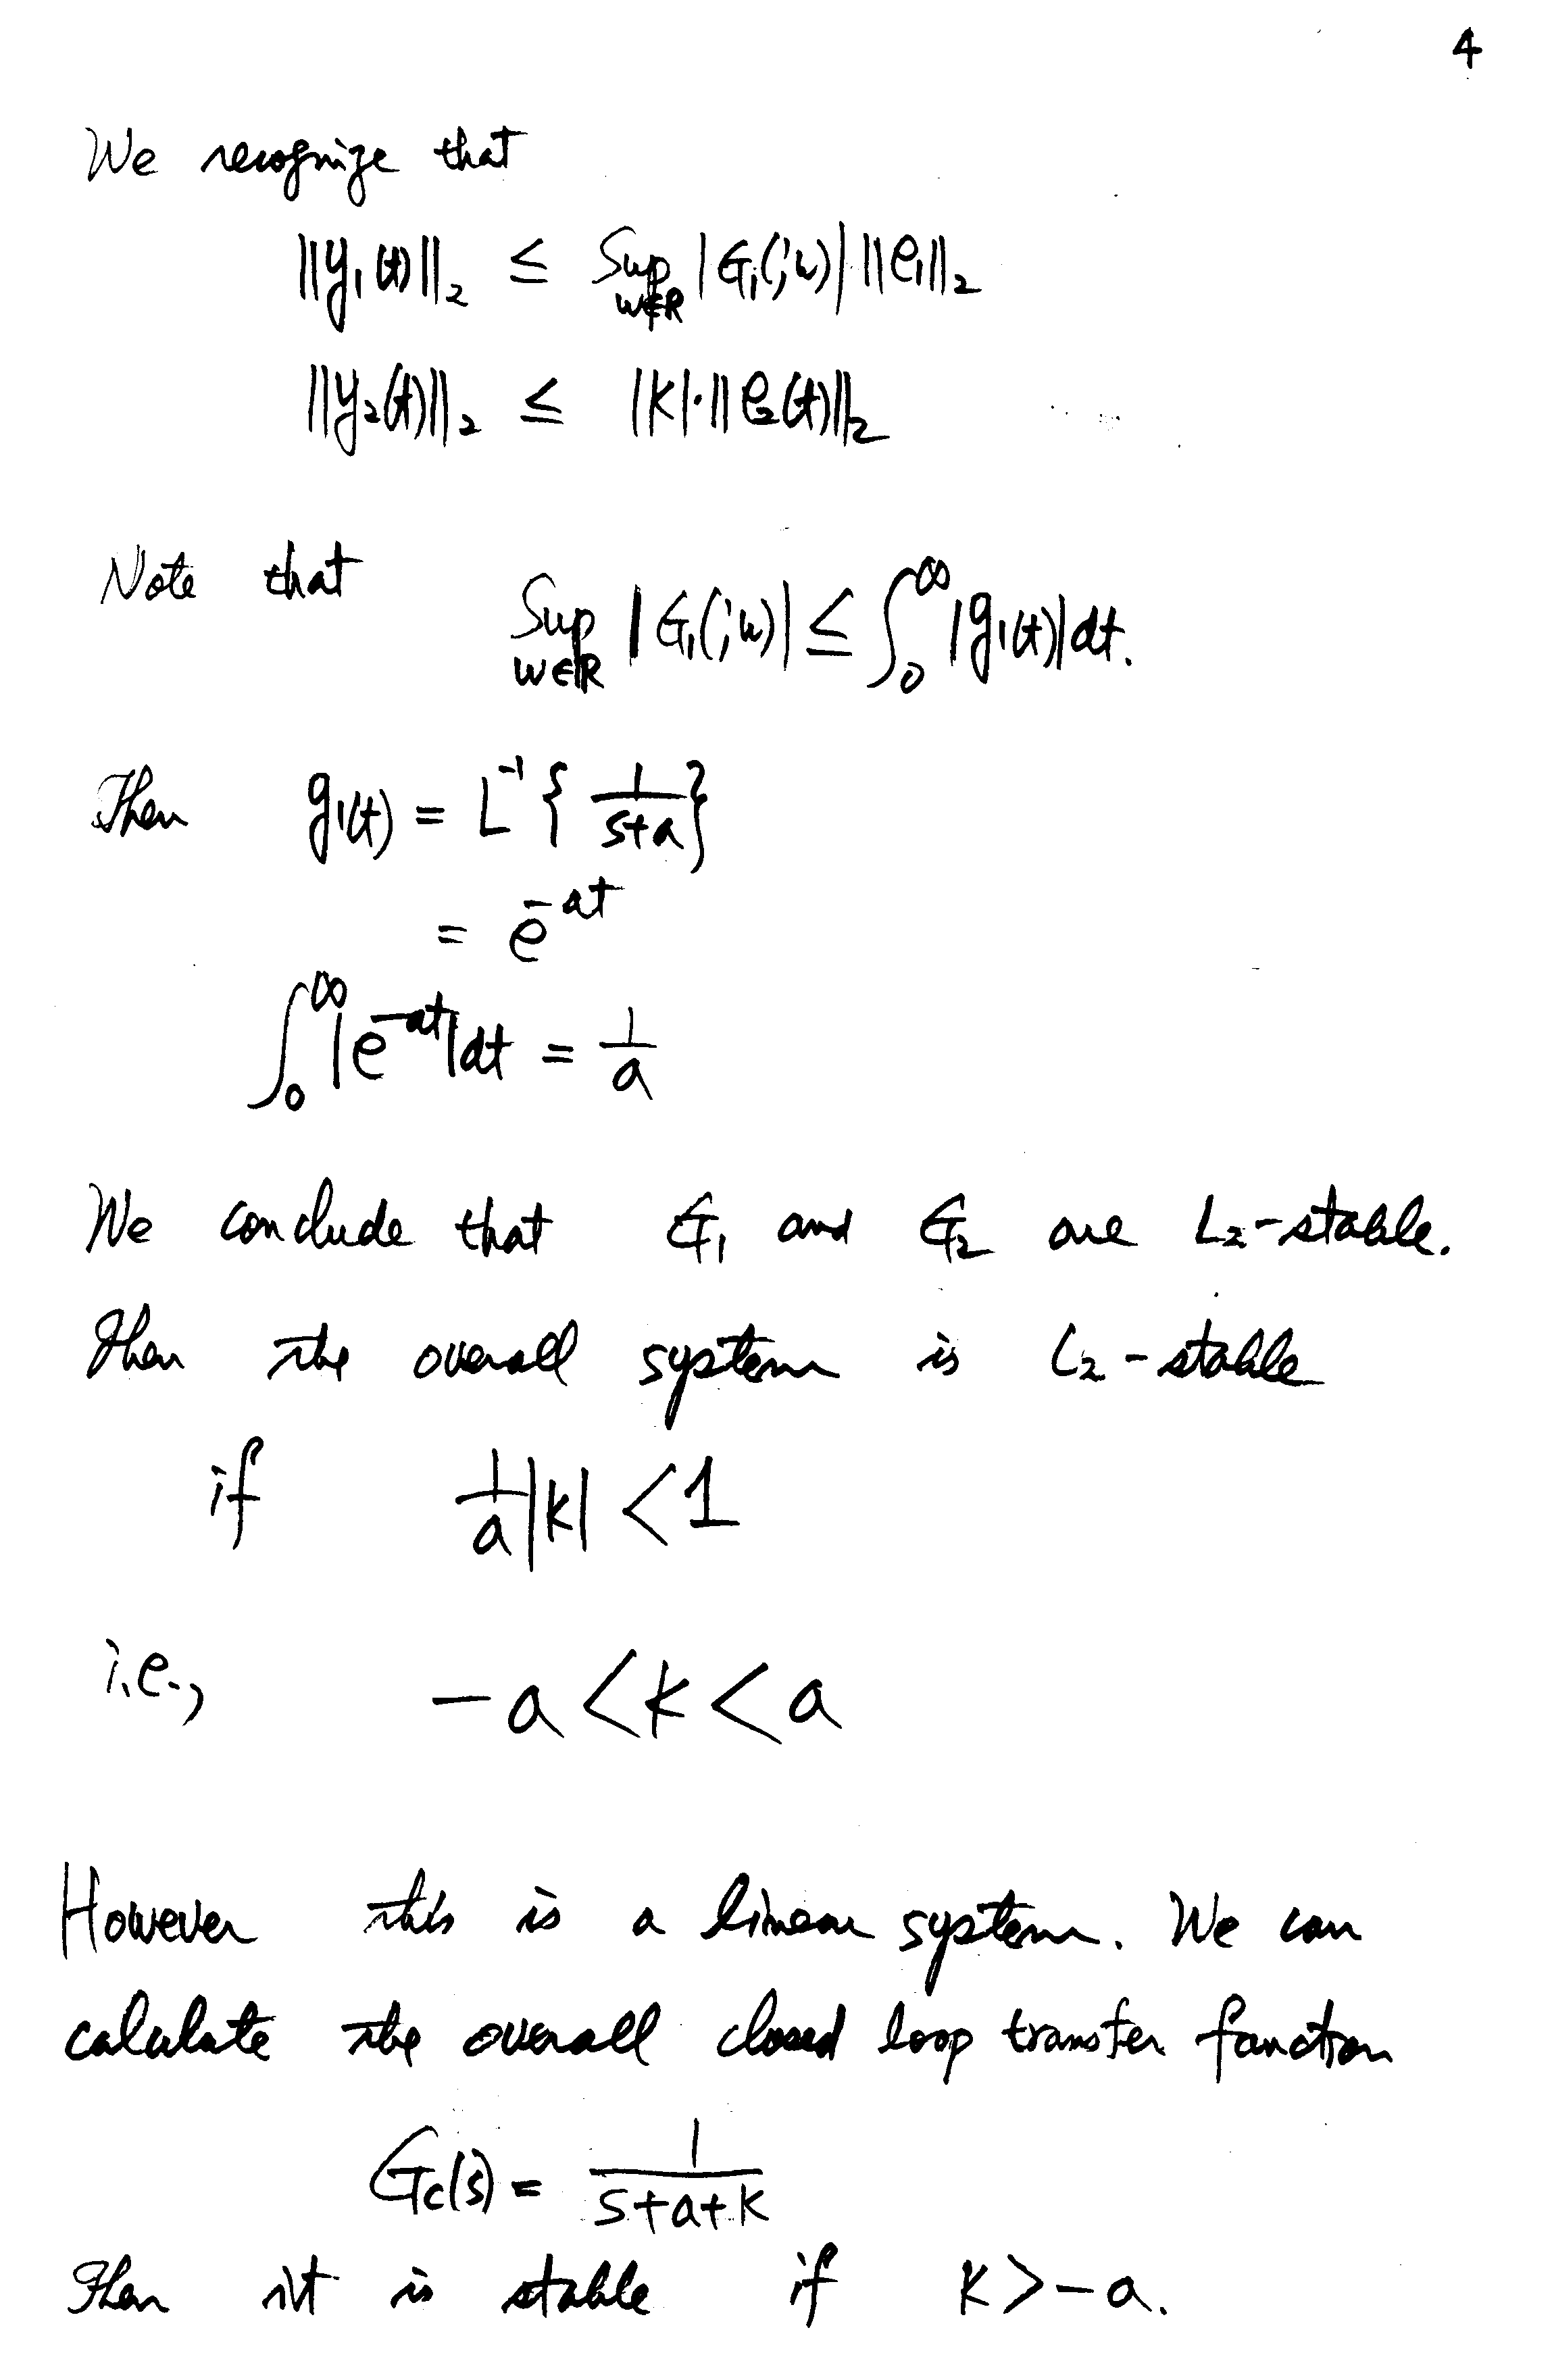 4
We recognize that
||y₁(t)||₂ ≤ Sup_{w∈R} |G₁(jw)| ||e₁||₂
||y₂(t)||₂ ≤ |K|·||e₂(t)||₂
Note that Sup_{w∈R} |G₁(jw)| ≤ ∫₀^∞ |g₁(t)|dt.
Then g₁(t) = L⁻¹{ 1/(s+a) }
= e^{-at}
∫₀^∞ |e^{-at}|dt = 1/a
We conclude that G₁ and G₂ are L₂-stable.
Then the overall system is L₂-stable
if 1/a |K| < 1
i.e., -a < K < a
However this is a linear system. We can
calculate the overall closed loop transfer function
Gc(s) = 1/(s+a+K)
Then it is stable if K > -a.